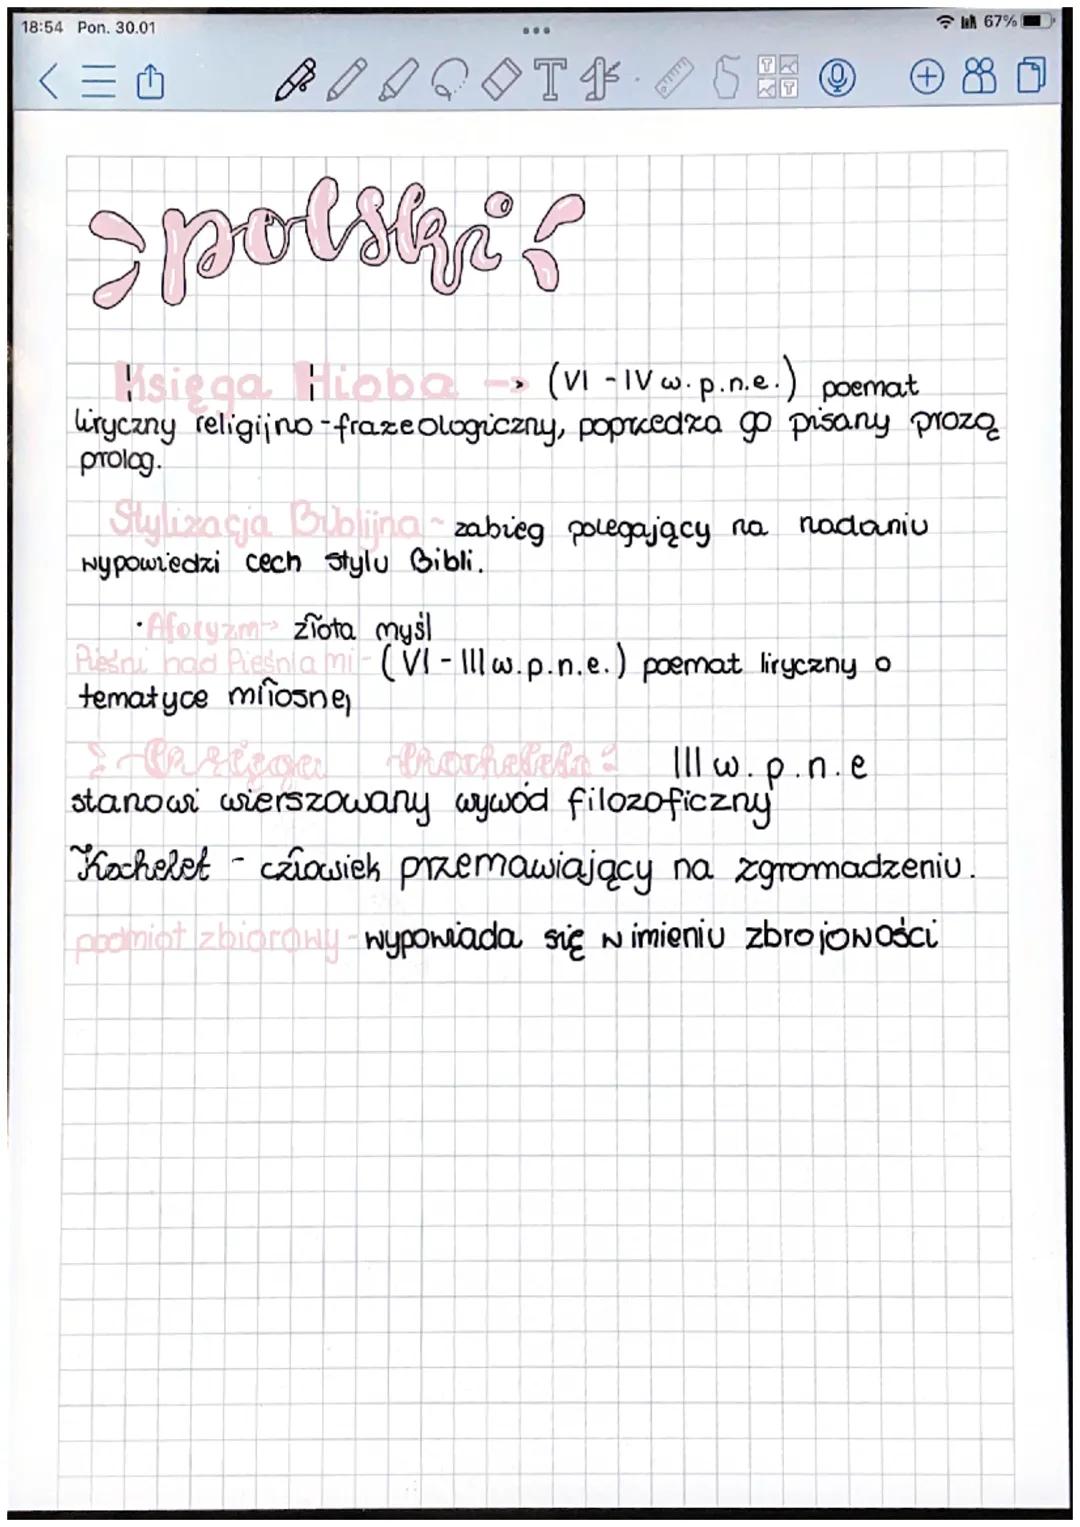 18:54 Pon. 30.01
67%
polski
Księga Hioba -> (VI - IV w. p.n.e.) poemat
liryczny religijno-frazeologiczny, poprzedza go pisany prozą
prolog.
Stylizacja Biblijna - zabieg polegający na nadaniu
wypowiedzi cech stylu Bibli.
· Aforyzm -> złota myśl
Pieśni nad Pieśniami - (VI - III w. p.n.e.) poemat liryczny o
tematyce miłosnej
Księga Kocheleta: III w. p.n.e
stanowi wierszowany wywód filozoficzny
Kochelet - człowiek przemawiający na zgromadzeniu.
podmiot zbiorowy - wypowiada się w imieniu zbrojowości